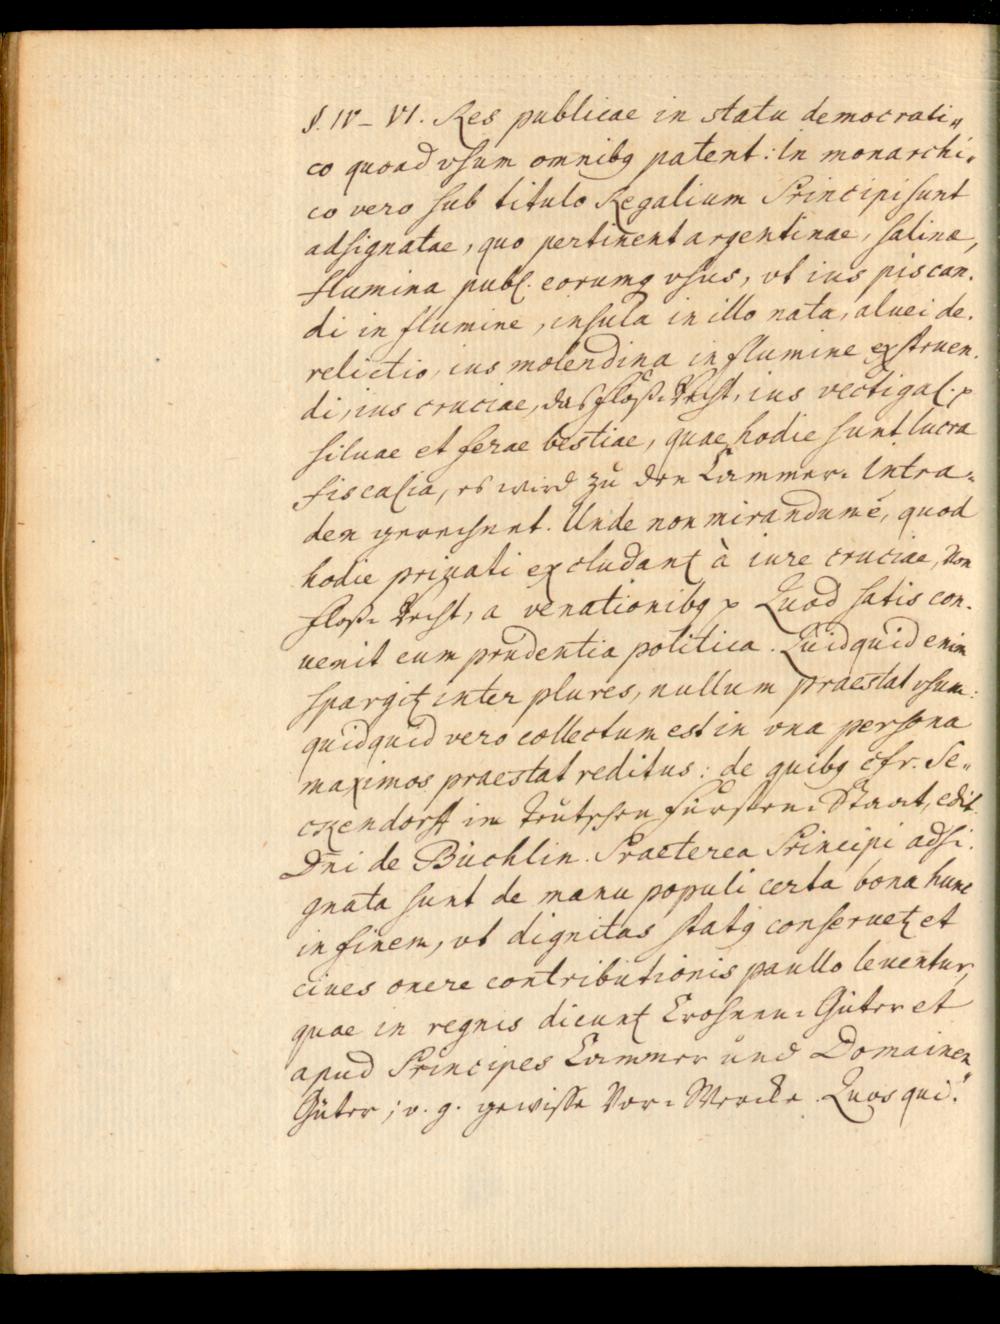 §. IV – VI. Res publicae in statu democrati„
co quoad vsum omnibq patent: In monarchi„
co vero sub titulo Regalium Principi sunt
adsignatae, quo pertinent argentinae, salinae,
flumina publ. eorumq vsus, vt ius piscan-
di in flumine, insula in illo nata, aluei de-
relictio, ius molendina in flumine exstruen-
di, ius cruciae, das Floß-Recht, ius vectigal. p
siluae et ferae bestiae, quae hodie sunt lucra
fiscalia, es wird zu den Cammer-Intra-
den gerechnet. Unde non mirandum ē, quod
hodie priuati excludant à iure cruciae, von
Floß-Recht, a venationibq p Quod satis con-
uenit cum prudentia politica. Quidquid enim
spargit inter plures, nullum praestat vsum:
quidquid vero collectum est in vna persona
maximos praestat reditus: de quibq cfr. Se-
ckendorff im Teutschen Fürsten-Staat, edit.
Dn̄i de Büchlin. Praeterea Principi adsi-
gnata sunt de manu populi certa bona hunc
in finem, vt dignitas statq conseruet et
ciues onere contributionis paullo leuentur,
quae in regnis dicunt Crohnen-Güter et
apud Principes Cammer und Domainen„
Güter; v. g. gewisse Vor-Wercke. Quos qui-